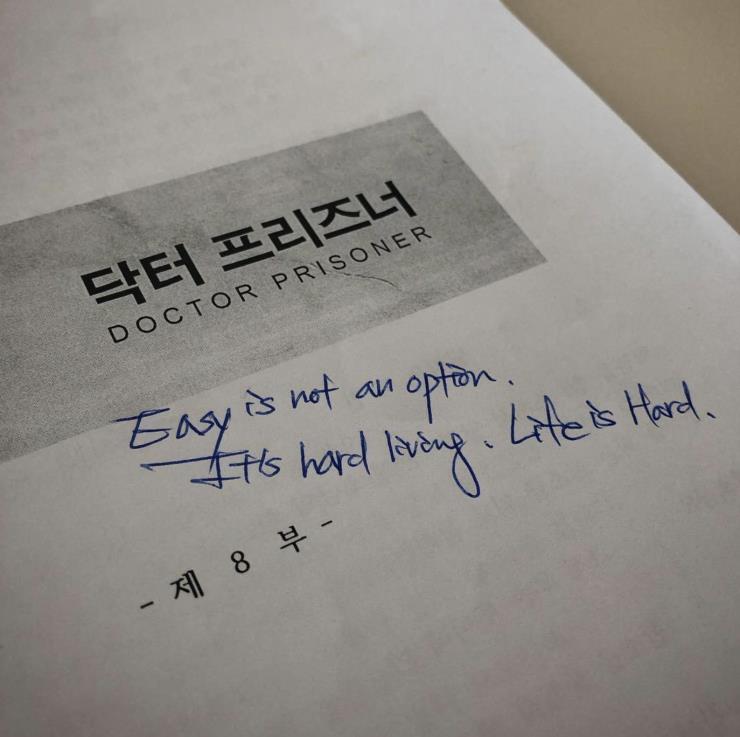 닥터 프리즈너
DOCTOR PRISONER
Easy is not an option.
It's hard living. Life is Hard.
- 제 8 부 -